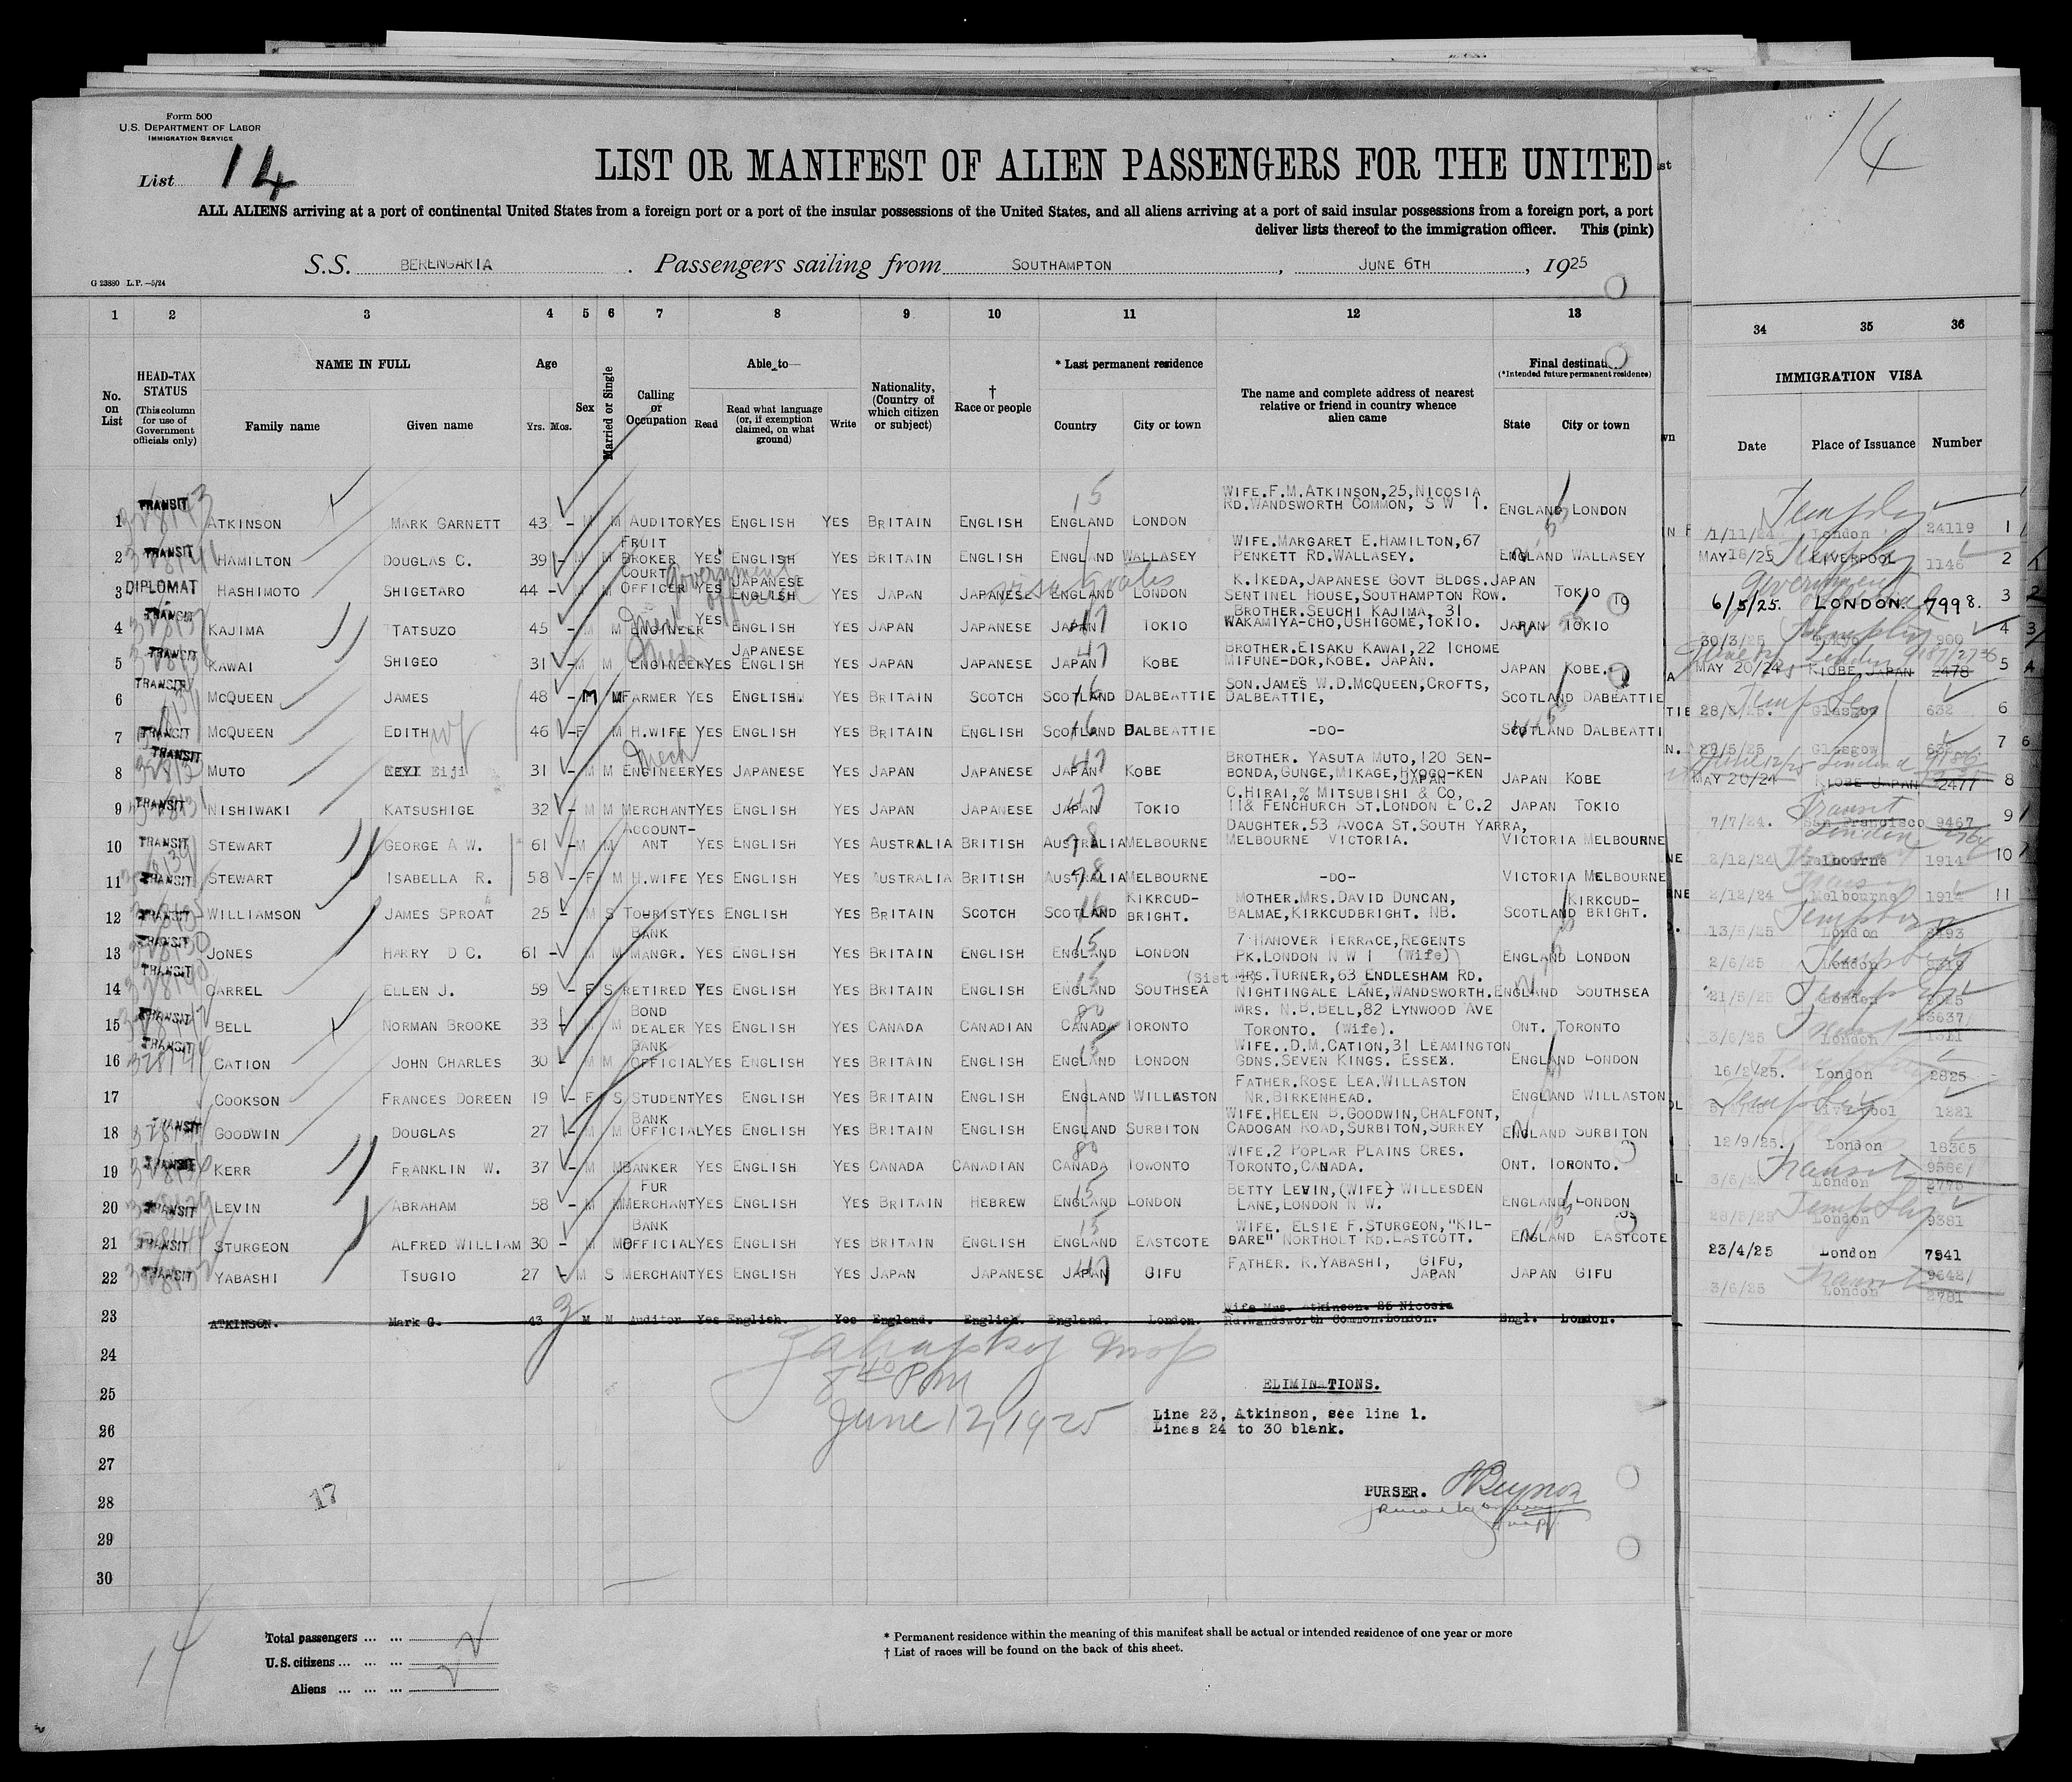 Form 500
U.S. DEPARTMENT OF LABOR
IMMIGRATION SERVICE
List 14
14
LIST OR MANIFEST OF ALIEN PASSENGERS FOR THE UNITED
ALL ALIENS arriving at a port of continental United States from a foreign port or a port of the insular possessions of the United States, and all aliens arriving at a port of said insular possessions from a foreign port, a port
deliver lists thereof to the immigration officer. This (pink)
S.S. BERENGARIA. Passengers sailing from SOUTHAMPTON, JUNE 6TH, 1925
G 23880 L.P.—5/24
1 2 3 4 5 6 7 8 9 10 11 12 13 34 35 36
No. on List
HEAD-TAX STATUS (This column for use of Government officials only)
NAME IN FULL
Family name Given name
Age
Yrs. Mos.
Sex
Married or Single
Calling or Occupation
Able to—
Read
Read what language (or, if exemption claimed, on what ground)
Write
Nationality, (Country of which citizen or subject)
† Race or people
* Last permanent residence
Country City or town
The name and complete address of nearest relative or friend in country whence alien came
Final destinat
(*Intended future permanent residence)
State City or town
IMMIGRATION VISA
Date Place of Issuance Number
1 TRANSIT ATKINSON MARK GARNETT 43 - M M AUDITOR YES ENGLISH YES BRITAIN ENGLISH ENGLAND LONDON WIFE.F.M.ATKINSON,25,NICOSIA RD.WANDSWORTH COMMON, S W 1. ENGLAND LONDON /1/11/24 London 24119 1
2 TRANSIT HAMILTON DOUGLAS C. 39 - M M FRUIT BROKER YES ENGLISH YES BRITAIN ENGLISH ENGLAND WALLASEY WIFE.MARGARET E.HAMILTON,67 PENKETT RD.WALLASEY. ENGLAND WALLASEY MAY18/25 LIVERPOOL 1146 2
3 DIPLOMAT HASHIMOTO SHIGETARO 44 - M M COURT OFFICER Government official YES JAPANESE ENGLISH YES JAPAN JAPANESE ENGLAND LONDON K.IKEDA,JAPANESE GOVT BLDGS.JAPAN SENTINEL HOUSE,SOUTHAMPTON ROW. TOKIO 6/5/25. LONDON. 7998. 3
4 TRANSIT KAJIMA TATSUZO 45 - M M ENGINEER YES ENGLISH YES JAPAN JAPANESE JAPAN TOKIO BROTHER.SEUCHI KAJIMA, 31 WAKAMIYA-CHO,USHIGOME,TOKIO. JAPAN TOKIO 30/3/25 900 4
5 TRANSIT KAWAI SHIGEO 31 - M M Mech ENGINEER YES JAPANESE ENGLISH YES JAPAN JAPANESE JAPAN KOBE BROTHER.EISAKU KAWAI,22 ICHOME MIFUNE-DOR,KOBE. JAPAN. JAPAN KOBE. MAY 20/24 KOBE JAPAN 2478 5
6 TRANSIT MCQUEEN JAMES 48 - M M FARMER YES ENGLISH. YES BRITAIN SCOTCH SCOTLAND DALBEATTIE SON.JAMES W.D.MCQUEEN,CROFTS, DALBEATTIE, SCOTLAND DABEATTIE 28/5/25. Glasgow 632 6
7 TRANSIT MCQUEEN EDITH wf 46 - F M H.WIFE YES ENGLISH YES BRITAIN ENGLISH SCOTLAND DALBEATTIE -DO- SCOTLAND DALBEATTI 29/5/25 Glasgow 7
8 TRANSIT MUTO Eiji 31 - M M Mech ENGINEER YES JAPANESE YES JAPAN JAPANESE JAPAN KOBE BROTHER. YASUTA MUTO, 120 SEN-BONDA,GUNGE,MIKAGE,HYOGO-KEN JAPAN JAPAN KOBE MAY 20/24 KOBE JAPAN 2477 8
9 TRANSIT NISHIWAKI KATSUSHIGE 32 - M M MERCHANT YES ENGLISH YES JAPAN JAPANESE JAPAN TOKIO C.HIRAI,% MITSUBISHI & CO, 11& FENCHURCH ST.LONDON E C.2 JAPAN TOKIO 7/7/24. San Francisco 9467 9
10 TRANSIT STEWART GEORGE A W. 61 - M M ACCOUNT-ANT YES ENGLISH YES AUSTRALIA BRITISH AUSTRALIA MELBOURNE DAUGHTER.53 AVOCA ST.SOUTH YARRA, MELBOURNE VICTORIA. VICTORIA MELBOURNE 2/12/24 Melbourne 1914 10
11 TRANSIT STEWART ISABELLA R. 58 - F M H.WIFE YES ENGLISH YES AUSTRALIA BRITISH AUSTRALIA MELBOURNE -DO- VICTORIA MELBOURNE 2/12/24 Melbourne 1914 11
12 TRANSIT WILLIAMSON JAMES SPROAT 25 - M S TOURIST YES ENGLISH YES BRITAIN SCOTCH SCOTLAND KIKRCUD-BRIGHT. MOTHER.MRS.DAVID DUNCAN, BALMAE,KIRKCUDBRIGHT. NB. SCOTLAND KIRKCUD-BRIGHT. 13/5/25 London
13 TRANSIT JONES HARRY D C. 61 - M M BANK MANGR. YES ENGLISH YES BRITAIN ENGLISH ENGLAND LONDON 7 HANOVER TERRACE,REGENTS PK.LONDON N W 1 (Wife) ENGLAND LONDON 2/6/25 London
14 TRANSIT CARREL ELLEN J. 59 - F S RETIRED YES ENGLISH YES BRITAIN ENGLISH ENGLAND SOUTHSEA (Sister) MRS.TURNER,63 ENDLESHAM RD. NIGHTINGALE LANE,WANDSWORTH. ENGLAND SOUTHSEA 21/5/25 London
15 TRANSIT BELL NORMAN BROOKE 33 - M M BOND DEALER YES ENGLISH YES CANADA CANADIAN CANADA TORONTO MRS. N.B.BELL,82 LYNWOOD AVE TORONTO. (Wife). ONT. TORONTO 3/6/25 London
16 TRANSIT 328144 CATION JOHN CHARLES 30 - M M BANK OFFICIAL YES ENGLISH YES BRITAIN ENGLISH ENGLAND LONDON WIFE..D.M.CATION,31 LEAMINGTON GDNS.SEVEN KINGS. ESSEX. ENGLAND LONDON 16/2/25. London 2825
17 COOKSON FRANCES DOREEN 19 - F S STUDENT YES ENGLISH YES BRITAIN ENGLISH ENGLAND WILLASTON FATHER.ROSE LEA.WILLASTON NR.BIRKENHEAD. ENGLAND WILLASTON Liverpool 1221
18 TRANSIT GOODWIN DOUGLAS 27 - M M BANK OFFICIAL YES ENGLISH YES BRITAIN ENGLISH ENGLAND SURBITON WIFE.HELEN B.GOODWIN,CHALFONT, CADOGAN ROAD,SURBITON,SURREY ENGLAND SURBITON 12/9/25. London 18365
19 TRANSIT KERR FRANKLIN W. 37 - M M BANKER YES ENGLISH YES CANADA CANADIAN CANADA TORONTO WIFE.2 POPLAR PLAINS CRES. TORONTO,CANADA. ONT. TORONTO. 3/6/25 London
20 TRANSIT LEVIN ABRAHAM 58 - M M FUR MERCHANT YES ENGLISH YES BRITAIN HEBREW ENGLAND LONDON BETTY LEVIN,(WIFE) WILLESDEN LANE,LONDON N W. ENGLAND LONDON London 9381
21 TRANSIT STURGEON ALFRED WILLIAM 30 - M M BANK OFFICIAL YES ENGLISH YES BRITAIN ENGLISH ENGLAND EASTCOTE WIFE. ELSIE F.STURGEON,"KIL-DARE" NORTHOLT RD.EASTCOTT. ENGLAND EASTCOTE 23/4/25 London 7941
22 TRANSIT YABASHI TSUGIO 27 - M S MERCHANT YES ENGLISH YES JAPAN JAPANESE JAPAN GIFU FATHER. R.YABASHI, GIFU, JAPAN JAPAN GIFU 3/6/25 London 2781
23 ATKINSON. Mark G. 43 M M Auditor Yes English. Yes England. English. England. London. Wife Mrs. Atkinson. 25 Nicosia Rd.Wandsworth Common.London. Engl. London.
24
25
26
27
28
29
30
8 40 PM
June 12, 1925
ELIMINATIONS.
Line 23, Atkinson, see line 1.
Lines 24 to 30 blank.
PURSER.
17
14
Total passengers ... ...
U.S. citizens ... ... ...
Aliens ... ... ...
* Permanent residence within the meaning of this manifest shall be actual or intended residence of one year or more
† List of races will be found on the back of this sheet.